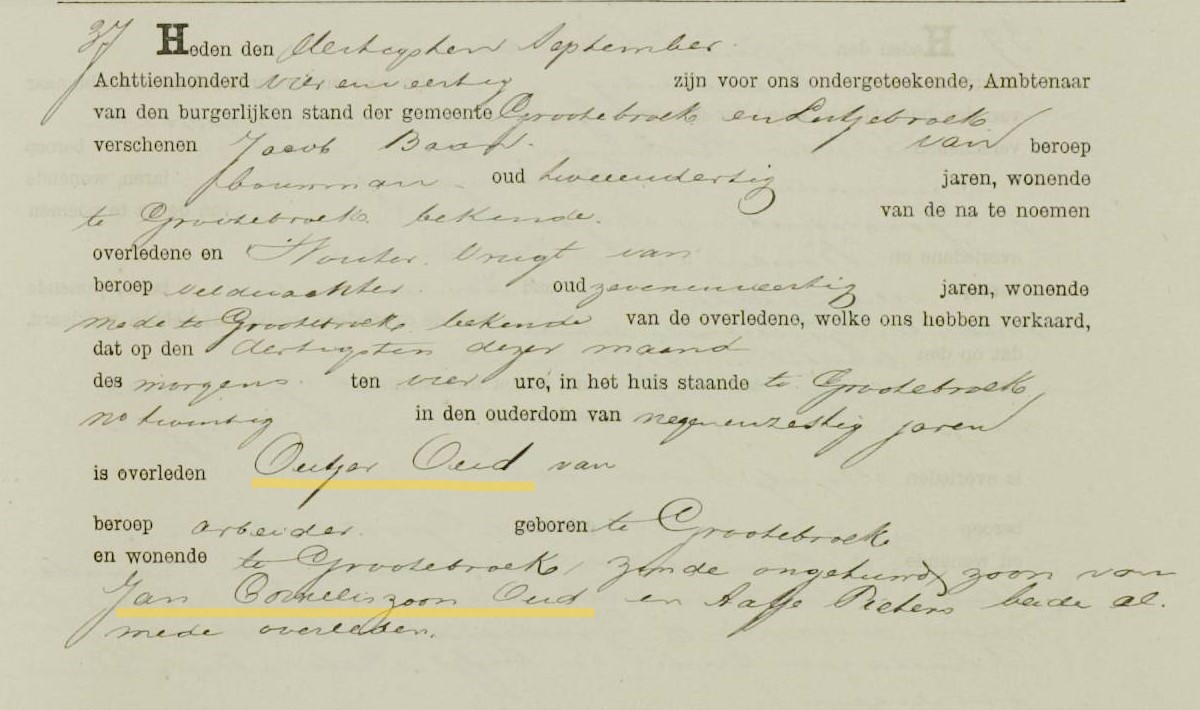 37 Heden den dertigsten September
Achttienhonderd vier en veertig zijn voor ons ondergeteekende, Ambtenaar
van den burgerlijken stand der gemeente Grootebroek en Lutjebroek
verschenen Jacob Baas van beroep
bouwman oud tweeendertig jaren, wonende
te Grootebroek bekende van de na te noemen
overledene en Wouter Vrugt van
beroep veldwachter oud zevenenveertig jaren, wonende
mede te Grootebroek bekende van de overledene, welke ons hebben verkaard,
dat op den dertigsten dezer maand
des morgens ten vier ure, in het huis staande te Grootebroek
no twintig in den ouderdom van negenenzestig jaren
is overleden Outjer Oud van
beroep arbeider geboren te Grootebroek
en wonende te Grootebroek, zynde ongehuwd zoon van
Jan Corneliszoon Oud en Aafje Pieters beide al.
mede overleden.